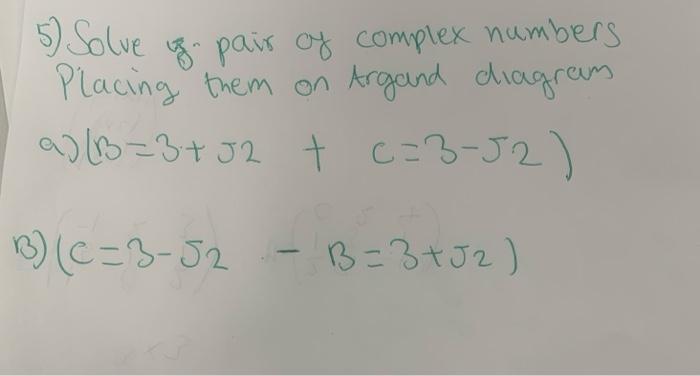 5) Solve pair of complex numbers
Placing them on Argand diagram
a) (B=3+J2 + C=3-J2)
B) (C=3-J2 - B=3+J2)